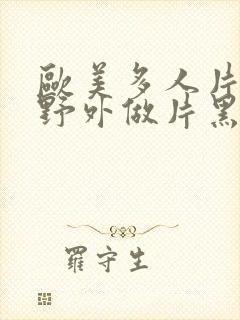 歐美多人片
野外做片黑
羅守生